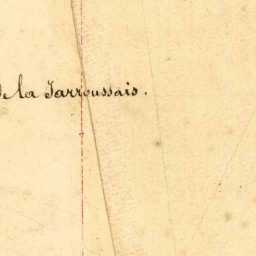 de la Jarroussais.